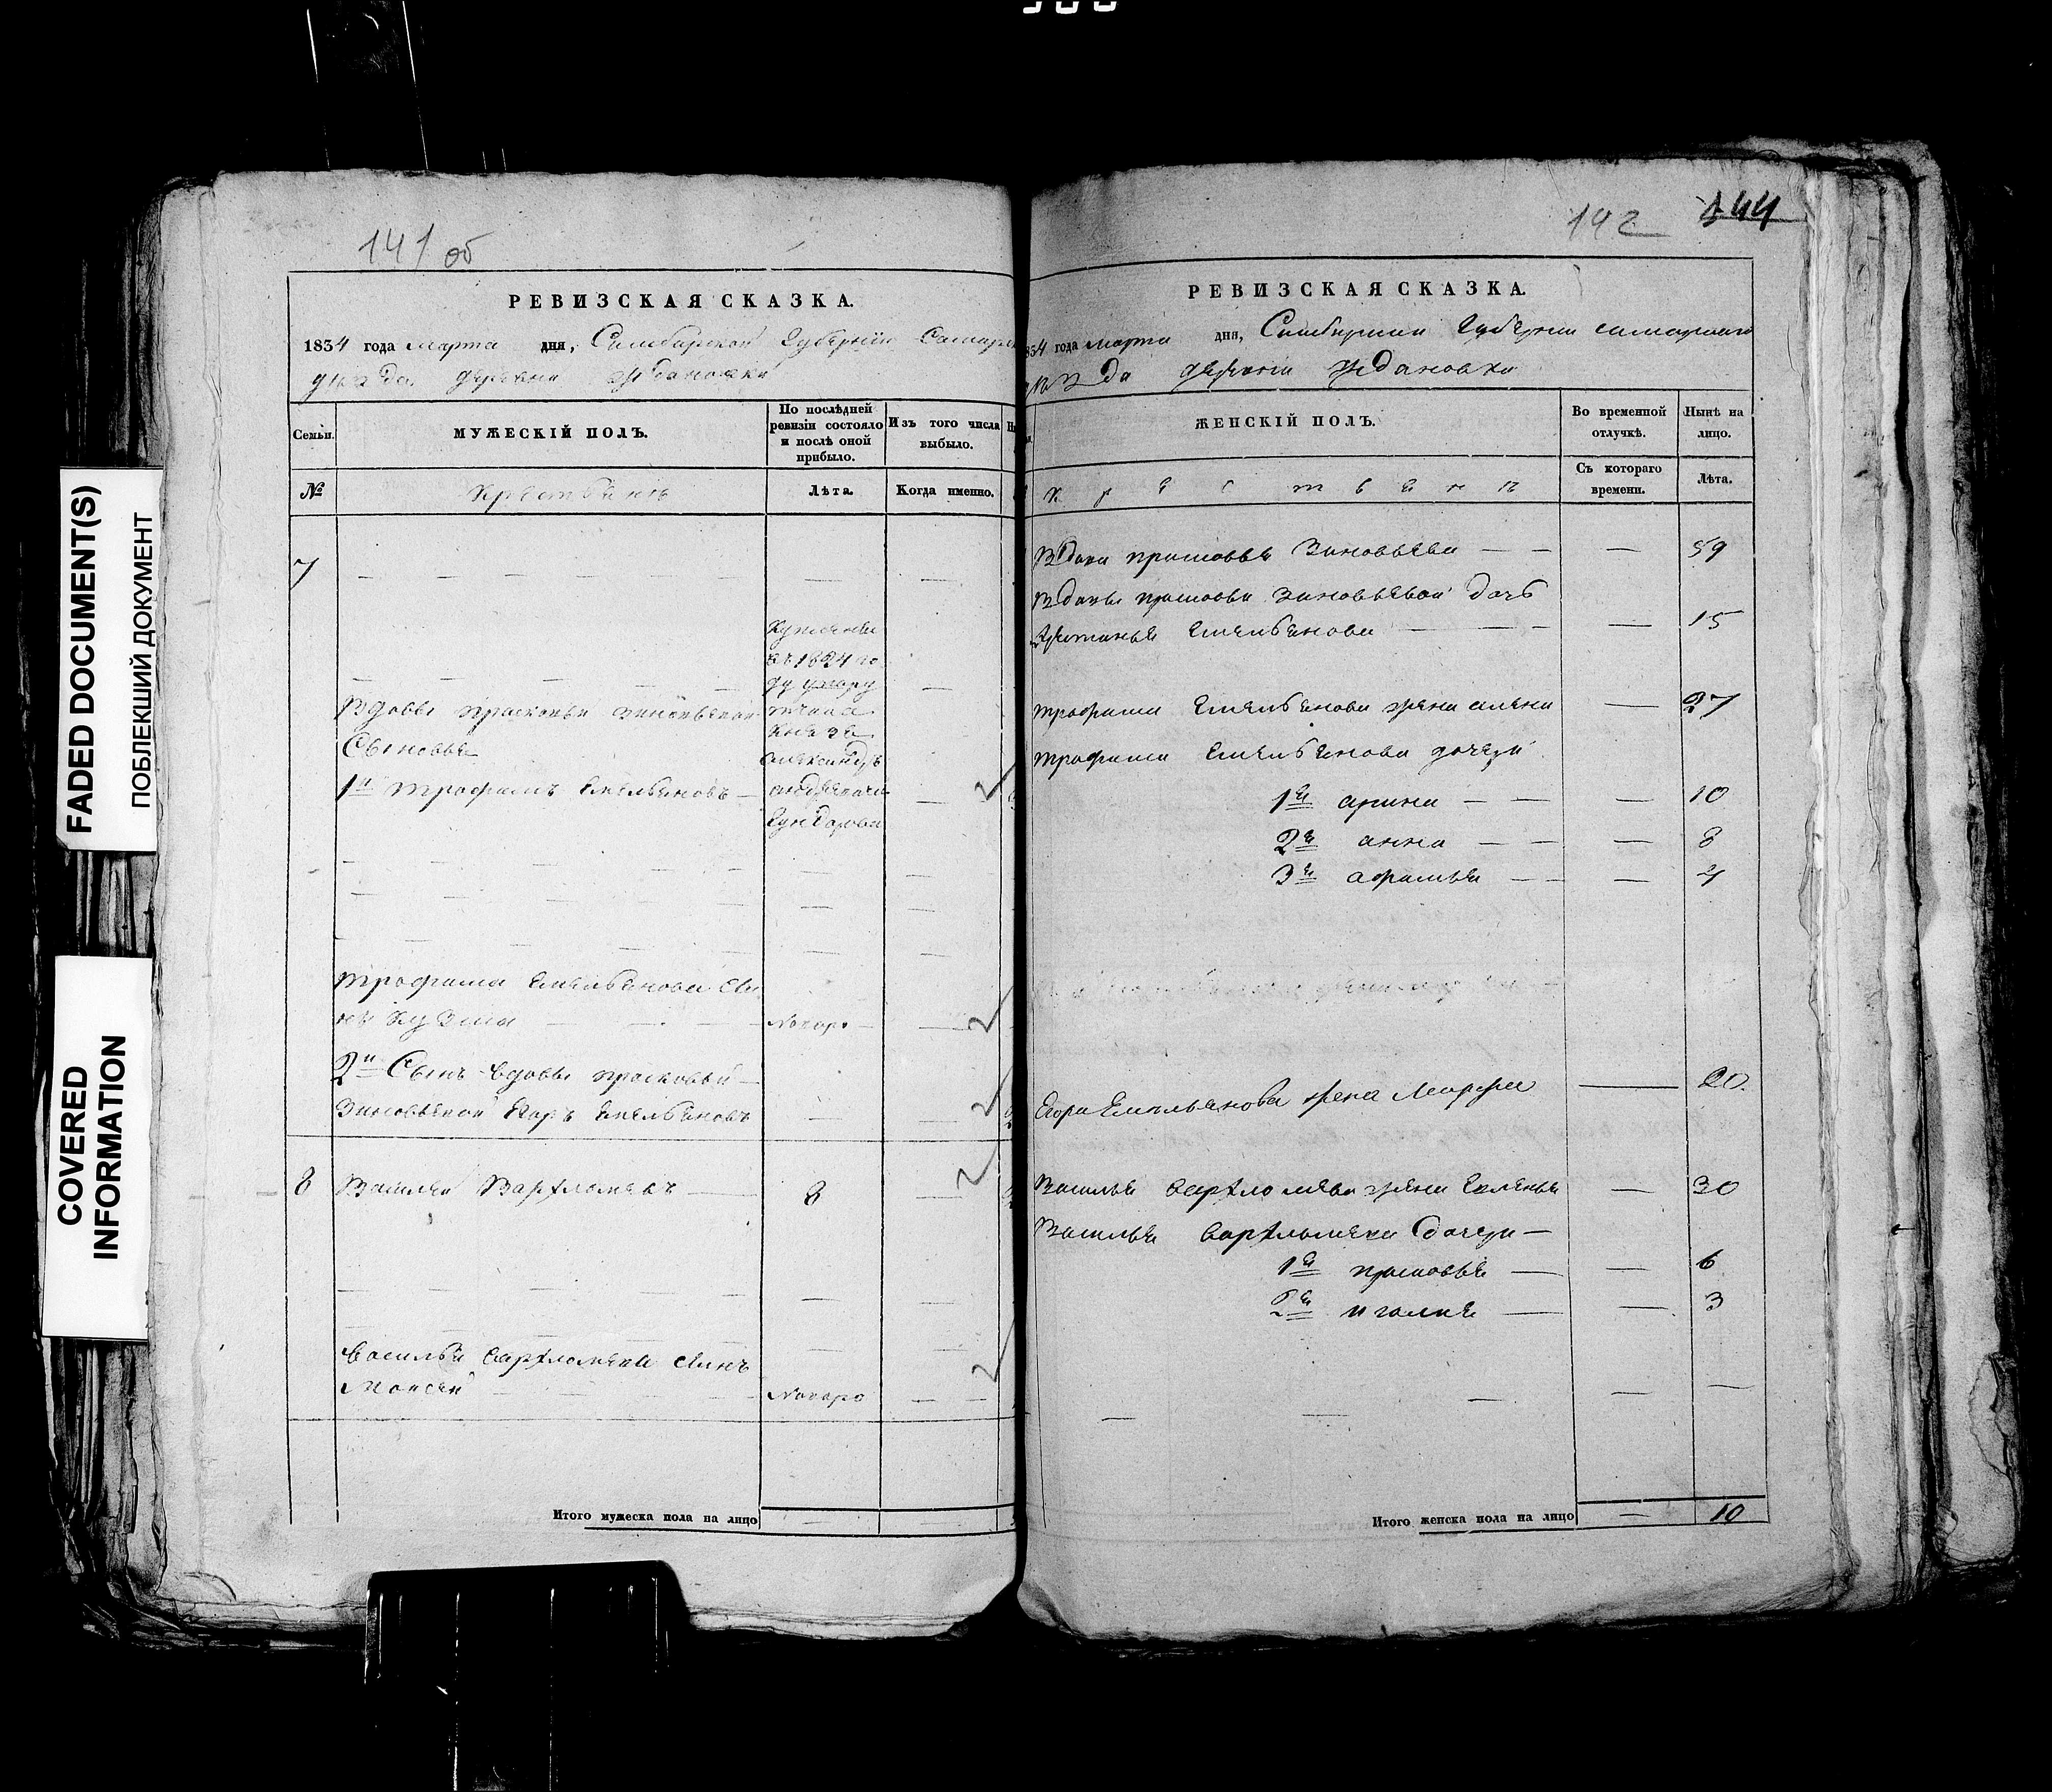 FADED DOCUMENT(S)
ПОБЛЕКШИЙ ДОКУМЕНТ
COVERED
INFORMATION
141 об
РЕВИЗСКАЯ СКАЗКА.
1834 года марта дня, Симбирской губернии Самарск
уѣзда деревни Ждановки
Семьи.
МУЖЕСКІЙ ПОЛЪ.
По послѣдней
ревизіи состояло
и послѣ оной
прибыло.
Изъ того числа
выбыло.
№
Крестьянъ
Лѣта.
Когда именно.
7
Куплены
въ 1824 го
ду у
князя
Александръ
Вдовы Прасковьи Зиновьевой
Сыновья
1й Трофимъ Емельяновъ
Трофима Емельянова сы
нъ Кузма
Новоро
2й Сынъ вдовы Прасковьи
Зиновьевой Егоръ Емельяновъ
8 Василей Варѳломѣевъ 8
Василья Варѳломѣева сынъ
Моисей
Новоро
Итого мужеска пола на лицо
142 144
РЕВИЗСКАЯ СКАЗКА.
834 года марта дня, Симбирской губернии Самарского
уѣзда деревни Ждановки
ЖЕНСКІЙ ПОЛЪ.
Во временной
отлучкѣ.
Нынѣ на
лицо.
Крестьянъ
Съ котораго
времени.
Лѣта.
Вдова Прасковья Зиновьева — — — 59
Вдовы Прасковьи Зиновьевой дочь
Емельянова — 15
Трофима Емельянова жена Алена — 27
Трофима Емельянова дочери
1я Арина — — — 10
2я Анна — — — 8
3я Афимья — — —
Егора Емельянова жена Марфа — 20
Василья Варѳломѣева жена — 30
Василья Варѳломѣева дочери —
1я Прасковья — — 6
2я — — 3
Итого женска пола на лицо — 10